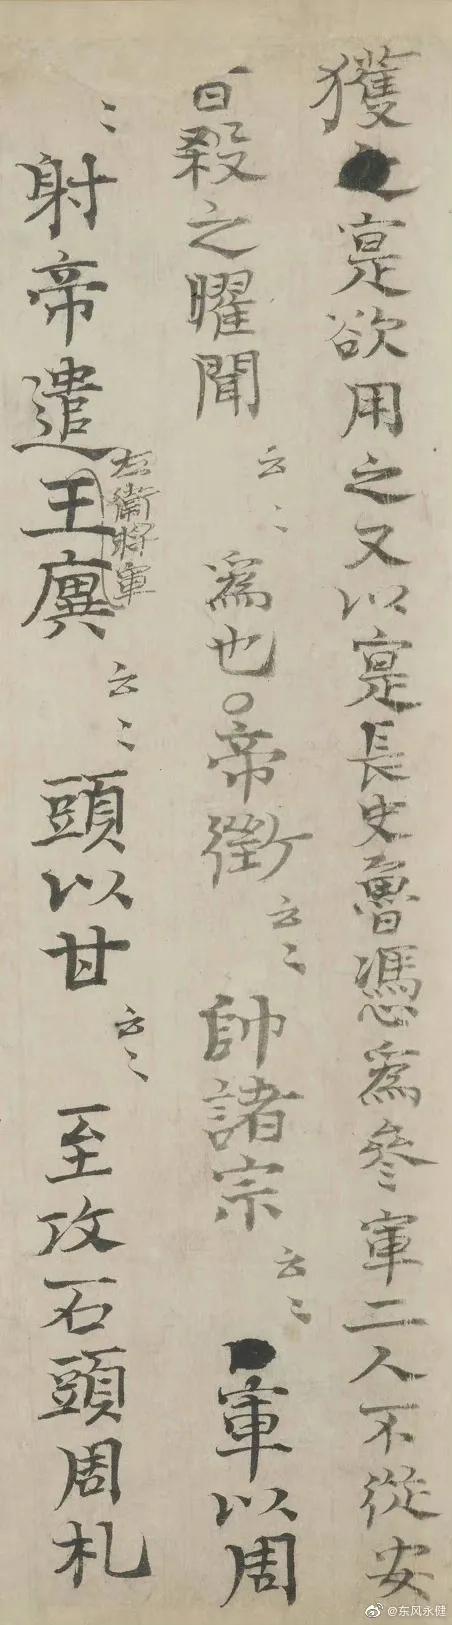 獲之寔欲用之又以寔長史魯憑爲叅軍二人不從安
殺之曜聞云〻爲也○帝徵云〻帥諸宗云〻軍以周
〻射帝遣王廙云〻頭以甘云〻至攻石頭周札
左衛將軍
@东风永健